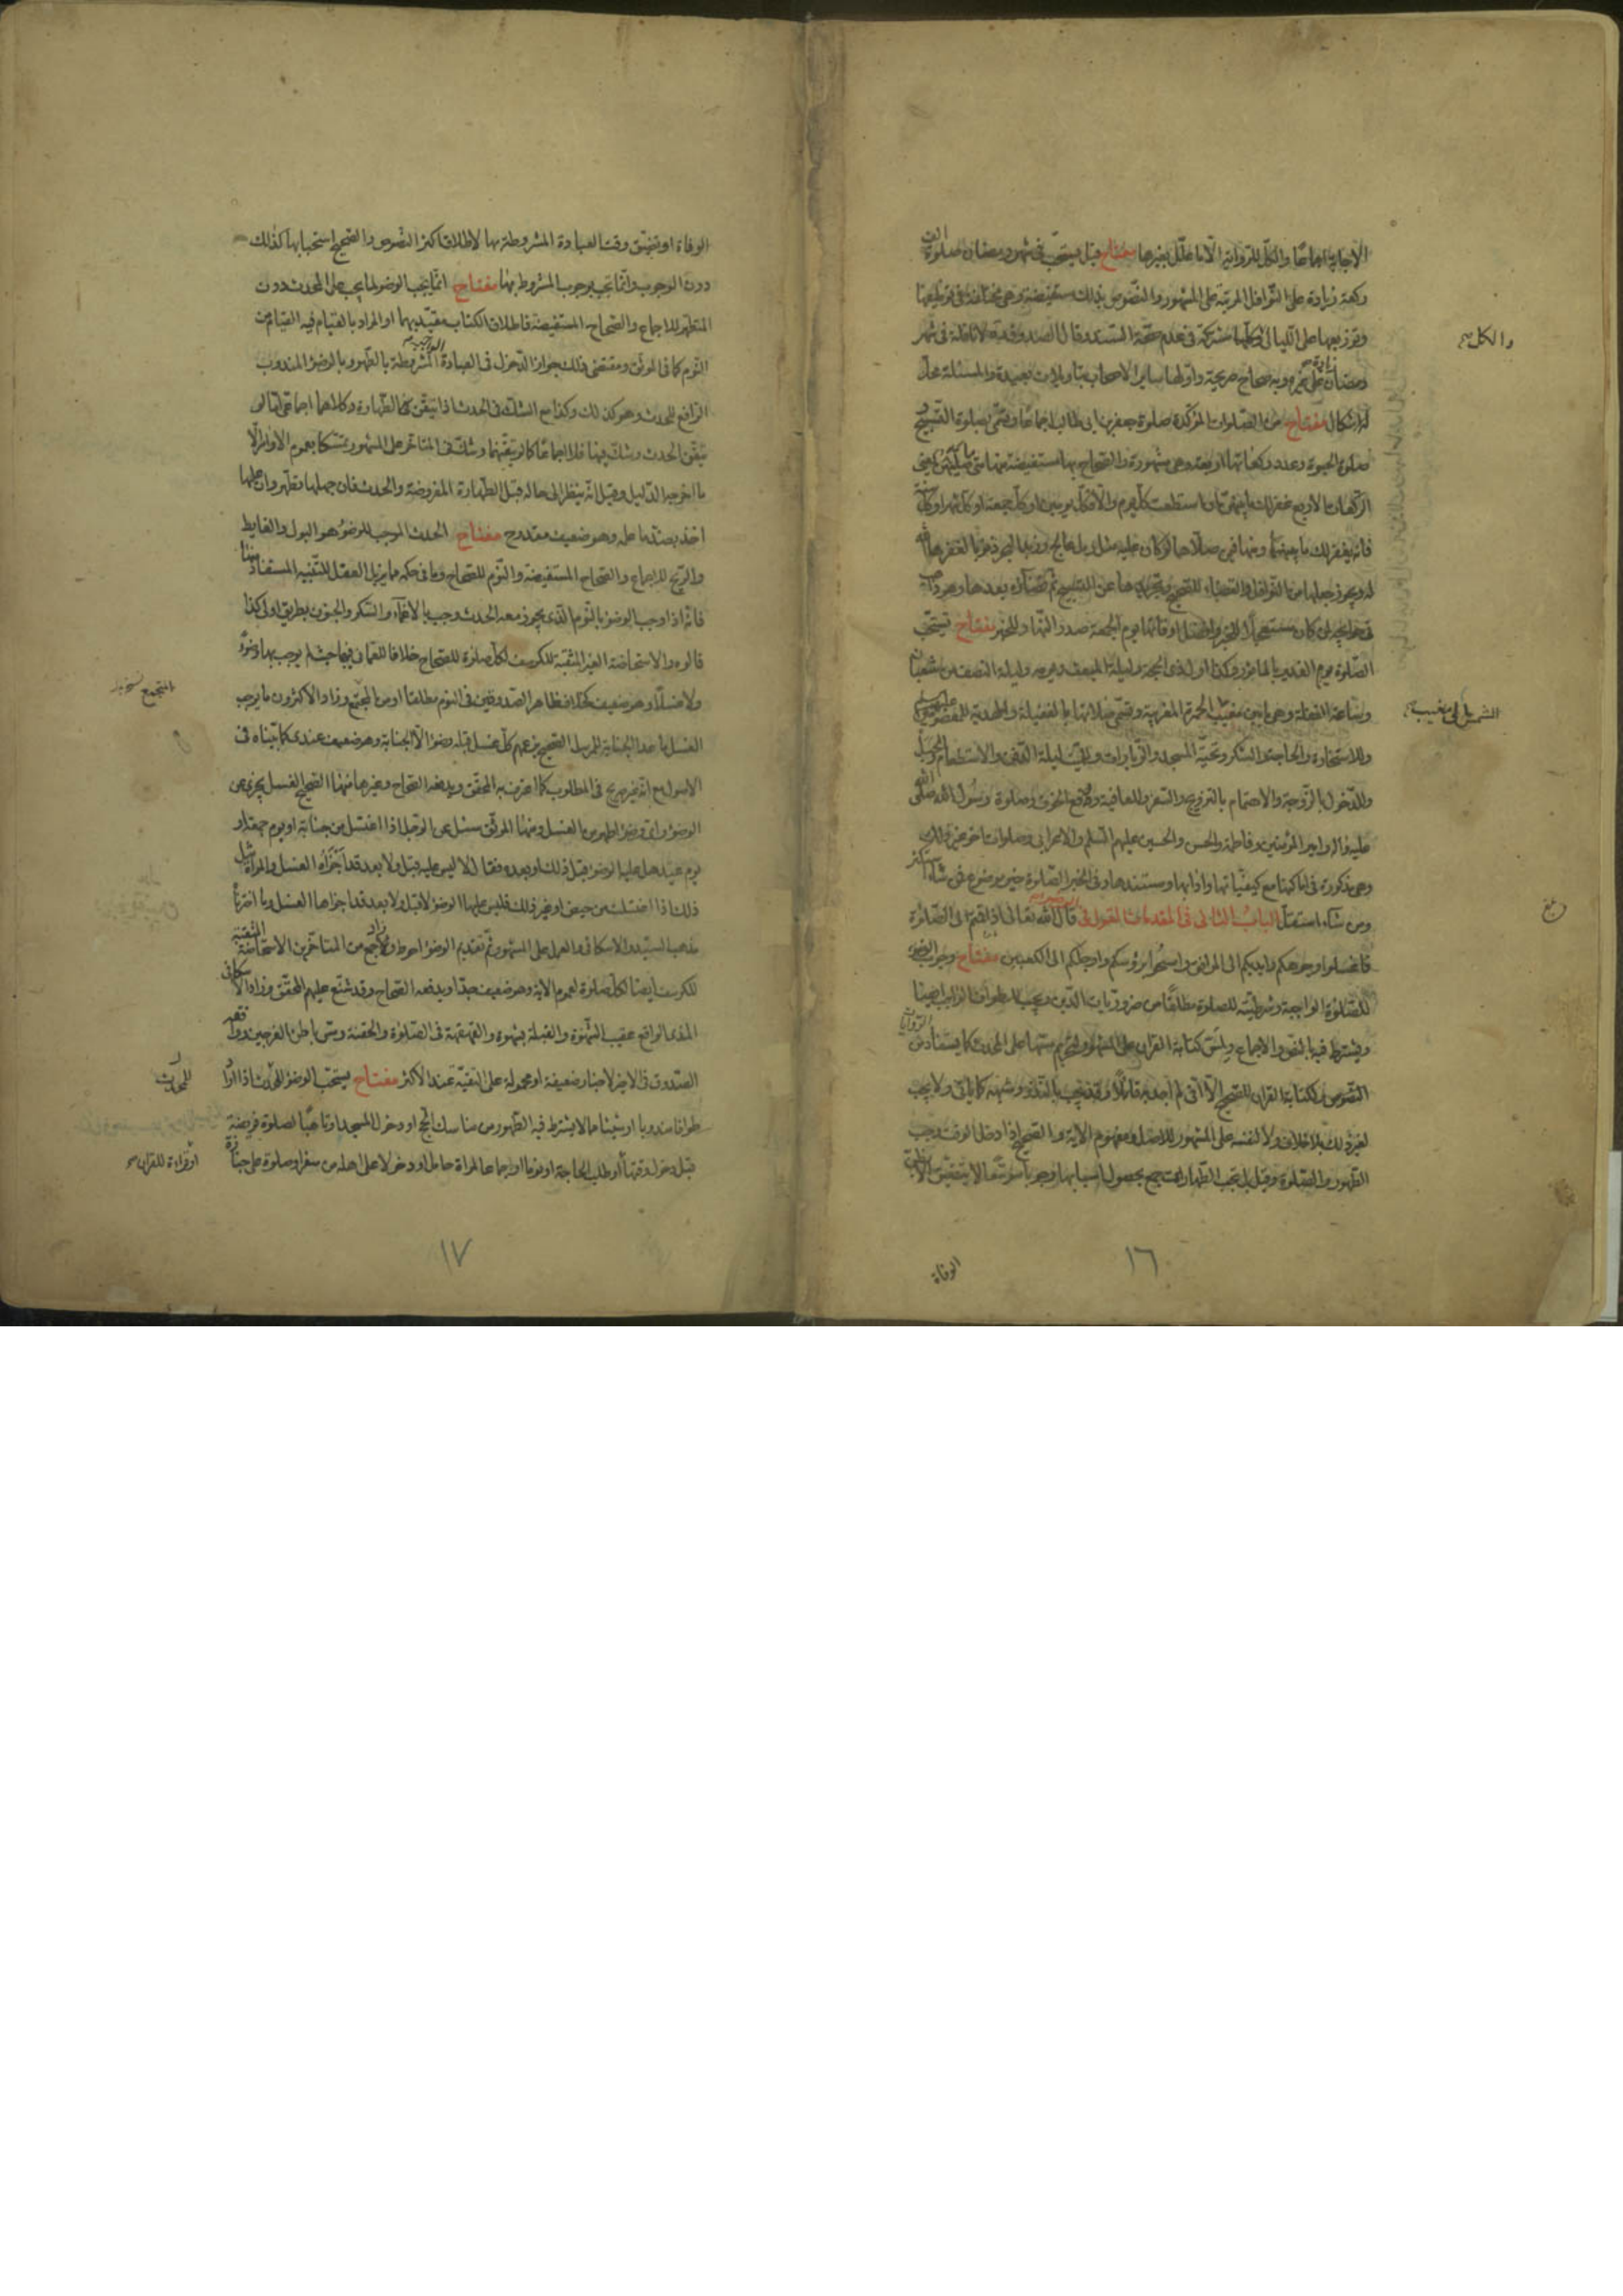 الاجابة اجماعا والكل للرواية الا ما علل بغيرها مفتاح قيل يستحب في شهر رمضان صلوة الف
ركعة زيادة على النوافل المرتبة على المشهور والنصوص بذلك مستفيضة وهي مختلفة في توظيفها
وتوزيعها على الليالي وكلها مشتركة في عدم صحة السند وقال الصدوق لا نافلة في شهر
رمضان زيادة على غيره وبه صحاح صريحة واولها ساير الاصحاب بتاويلات بعيدة والمسئلة محل
اشكال مفتاح من الصلوات المؤكدة صلوة جعفر بن ابي طالب اجماعا وتسمى بصلوة التسبيح
وصلوة الحبوة وعدد ركعاتها اربعة وهي مشهورة والصحاح بها مستفيضة
الركعات الاربع غفر لك ما بينهن ان استطعت كل يوم والا فكل يومين او كل جمعة او كل شهر او كل سنة
فانه يغفر لك ما بينهما ومنها فيمن صلاها لو كان عليه مثل رمل عالج وزبد البحر ذنوبا لغفرها الله
له ويجوز جعلها من النوافل والقضاء للصحيح وتجريدها عن التسبيح ثم قضاؤه بعدها وهو ذاهب
في حوائجه لمن كان مستعجلا للخبر وافضل اوقاتها يوم الجمعة صدر النهار للخبر مفتاح تستحب
الصلوة يوم الغدير بالماثور وكذا اول ذي الحجة وليلة المبعث ويومه وليلة النصف من شعبان
وساعة الغفلة وهي ما بين مغيب الحمرة المغربية وتسمى
وللاستخارة والحاجة والشكر وتحية المسجد والزيارات وليلة الدفن والاستطعام والحبل
وللدخول بالزوجة والاهتمام بالتزويج والسفر والعافية ودفع الخوف وصلوة رسول الله صلى الله
عليه واله وامير المؤمنين وفاطمة والحسن والحسين عليهم السلم والاعرابي وصلوات اخر غير ذلك
وهي مذكورة في اماكنها مع كيفياتها وادابها ومستندها وفي الخبر الصلوة خير موضوع فمن شاء استكثر
ومن شاء استقل الباب الثاني في المقدمات القول في الوضوء قال الله تعالى اذا قمتم الى الصلوة
فاغسلوا وجوهكم وايديكم الى المرافق وامسحوا برؤسكم وارجلكم الى الكعبين مفتاح وجوب الوضوء
للصلوة الواجبة وشرطيته للصلوة مطلقا من ضروريات الدين ويجب للطواف الواجب ايضا
ويشترط فيه بالنص والاجماع ولمس كتابة القران على المشهور لتحريم مسها على المحدث كما يستفاد من الروايات
النصوص وكتابة القران للصحيح الا اني لم اجد به قائلا وقد يجب بالنذر وشبهه كما ياتي ولا يجب
لغير ذلك بلا خلاف ولا لنفسه على المشهور للاصل ومفهوم الاية والصحيح اذا دخل الوقت وجب
الطهور والصلوة وقيل بل تجب الطهارات جميع بحصول اسبابها وجوبا موسعا لا يتضيق الا بظن
الوفاة
والكل صح
الشمس الى مغيب
١٦
الوفاة او تضيق وقت العبادة المشروطة بها لاطلاق اكثر النصوص والصحيح استحبابها كذلك
دون الوجوب وانما تجب بوجوب المشروط بها مفتاح انما يجب الوضوء لما يجب على المحدث دون
المتطهر للاجماع والصحاح المستفيضة فاطلاق الكتاب مقيد بهما او المراد بالقيام فيه القيام من
النوم كما في الموثق ومقتضى ذلك جواز الدخول في العبادة الواجبة المشروطة بالطهور بالوضوء المندوب
الرافع للحدث وهو كذلك وكذا مع الشك في الحدث اذا تيقن الطهارة وكلاهما اجماعي اما لو
تيقن الحدث وشك فيها فلا اجماعا كما لو تيقنهما وشك في المتاخر على المشهور تمسكا بعموم الاوامر الا
ما اخرجه الدليل وقيل انه ينظر الى حاله قبل الطهارة المفروضة والحدث فان جهلها تطهر وان علمها
اخذ بضد ما علمه وهو ضعيف مقدوح مفتاح الحدث الموجب للوضوء هو البول والغايط
والريح للاجماع والصحاح المستفيضة والنوم للصحاح وما في حكمه مما يزيل العقل للتنبيه المستفاد منها
فانه اذا وجب الوضوء بالنوم الذي يجوز معه الحدث وجب بالاغماء والسكر والجنون بطريق اولى كذا
قالوه والاستحاضة الغير المثقبة للكرسف لكل صلوة للصحاح خلافا للعماني فيها حيث لم يوجب بها وضوء
ولا غسلا وهو ضعيف كخلاف ظاهر الصدوقين في النوم مطلقا او من المجتمع وزاد الاكثرون ما يوجب
الغسل ما عدا الجنابة للمرسل الصحيح بزعمهم كل غسل قبله وضوء الا الجنابة وهو ضعيف عندي كما بيناه في
الاصول مع انه غير صريح في المطلوب كما اعترف به المحقق ويدفعه الصحاح وغيرها فمنها الصحيح الغسل يجزي عن
الوضوء واي وضوء اطهر من الغسل ومنها الموثق سئل عن الرجل اذا اغتسل من جنابة او يوم جمعة او
يوم عيد هل عليه الوضوء قبل ذلك او بعده فقال لا ليس عليه قبل ولا بعد قد اجزاه الغسل والمراة مثل
ذلك اذا اغتسلت من حيض او غير ذلك فليس عليها الوضوء لا قبل ولا بعد قد اجزاها الغسل وما اخترناه
مذهب السيد والاسكافي والعمل على المشهور ثم تقديم الوضوء احوط وزاد جمع من المتاخرين الاستحاضة المثقبة
للكرسف ايضا لكل صلوة لعموم الاية وهو ضعيف جدا ويدفعه الصحاح وقد شنع عليهم المحقق وزاد الاسكافي
المذي الواقع عقيب الشهوة والقبلة بشهوة والقهقهة في الصلوة والحقنة ومس باطن الفرجين ووافقه
الصدوق في الاخير لاخبار ضعيفة او محمولة على التقية عند الاكثر مفتاح يستحب الوضوء للمحدث اذا اراد
طوافا مندوبا او شيئا مما لا يشترط فيه الطهور من مناسك الحج او دخول المسجد او تاهبا لصلوة فريضة
قبل دخول وقتها او طلب الحاجة او نوما او جماعا لمراة حامل او دخولا على اهله من سفر او صلوة على جنازة
المجمع نسخه بدل
للمحدث
او قراءة للقران صح
١٧